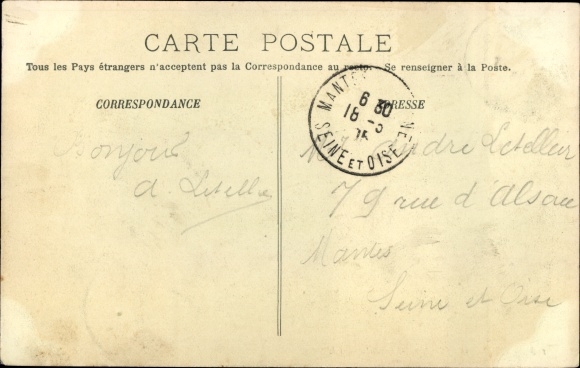 CARTE POSTALE
Tous les Pays étrangers n'acceptent pas la Correspondance au recto. - Se renseigner à la Poste.
CORRESPONDANCE
ADRESSE
MANTES
6 30
18 -3
SEINE ET OISE
Bonjour
A. Letellier
M André Letellier
79 rue d'Alsace
Mantes
Seine et Oise